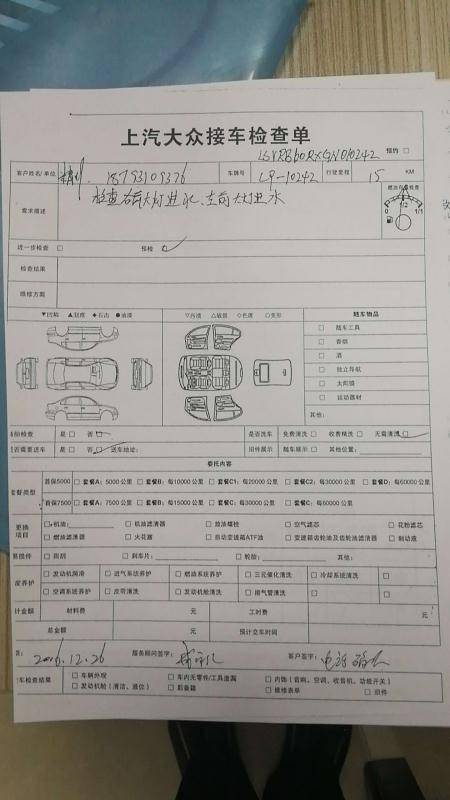 上汽大众接车检查单
预约 □
客户姓名/单位 18793109376 车牌号 L9-10242 行驶里程 15 KM
需求描述 检查右前大灯进水、左前大灯进水
燃油存量检查
0 1/2 1/1
进一步检查 □ 预检 □
检查结果
维修方案
▼凹陷 ▲划痕 ◆石击 ●油漆 ▽污渍 △破损 ◇色斑 ○变形 随车物品
□ 随车工具
□ 香烟
□ 酒
□ 独立导航
□ 太阳镜
□ 运动器材
其他:
胎检查 是 □ 否 □ 是否洗车 免费清洗 □ 收费精洗 □ 无需清洗 □
是否需要送车 是 □ 否 □ 送车地址: 旧件展示 随车展示 □ 其他位置:
委托内容
套餐类型
首保5000 □ 套餐A: 5000公里 □ 套餐B: 每10000公里 □ 套餐C1: 每20000公里 □ 套餐C2: 每30000公里 □ 套餐D: 每60000公里
首保7500 □ 套餐A: 7500公里 □ 套餐B: 每15000公里 □ 套餐C: 每30000公里 □ 套餐C: 每60000公里
更换项目
□ 机油: □ 机油滤清器 □ 放油螺栓 □ 空气滤芯 □ 花粉滤芯
□ 燃油滤清器 □ 火花塞 □ 自动变速箱ATF油 □ 变速箱齿轮油及齿轮油滤清器 □ 制动液
易损件 □ 雨刮 □ 刹车片: □ 轮胎: 其他:
度养护
□ 发动机润滑 □ 进气系统养护 □ 燃油系统养护 □ 三元催化清洗 □ 冷却系统清洗 □
□ 空调系统养护 □ 皮带清洗 □ 发动机舱清洗 □ 排气管清洗 □
计金额 材料费 元 工时费 元
总金额 元 预计交车时间
2016.12.26 服务顾问签字: 客户签字:
车检查结果
□ 车辆外观 □ 车内无零件/工具遗漏 □ 内饰(音响、空调、收音机、功能开关)
□ 发动机舱(清洁、液位) □ 后备箱 □ 维修表单 □ 旧件